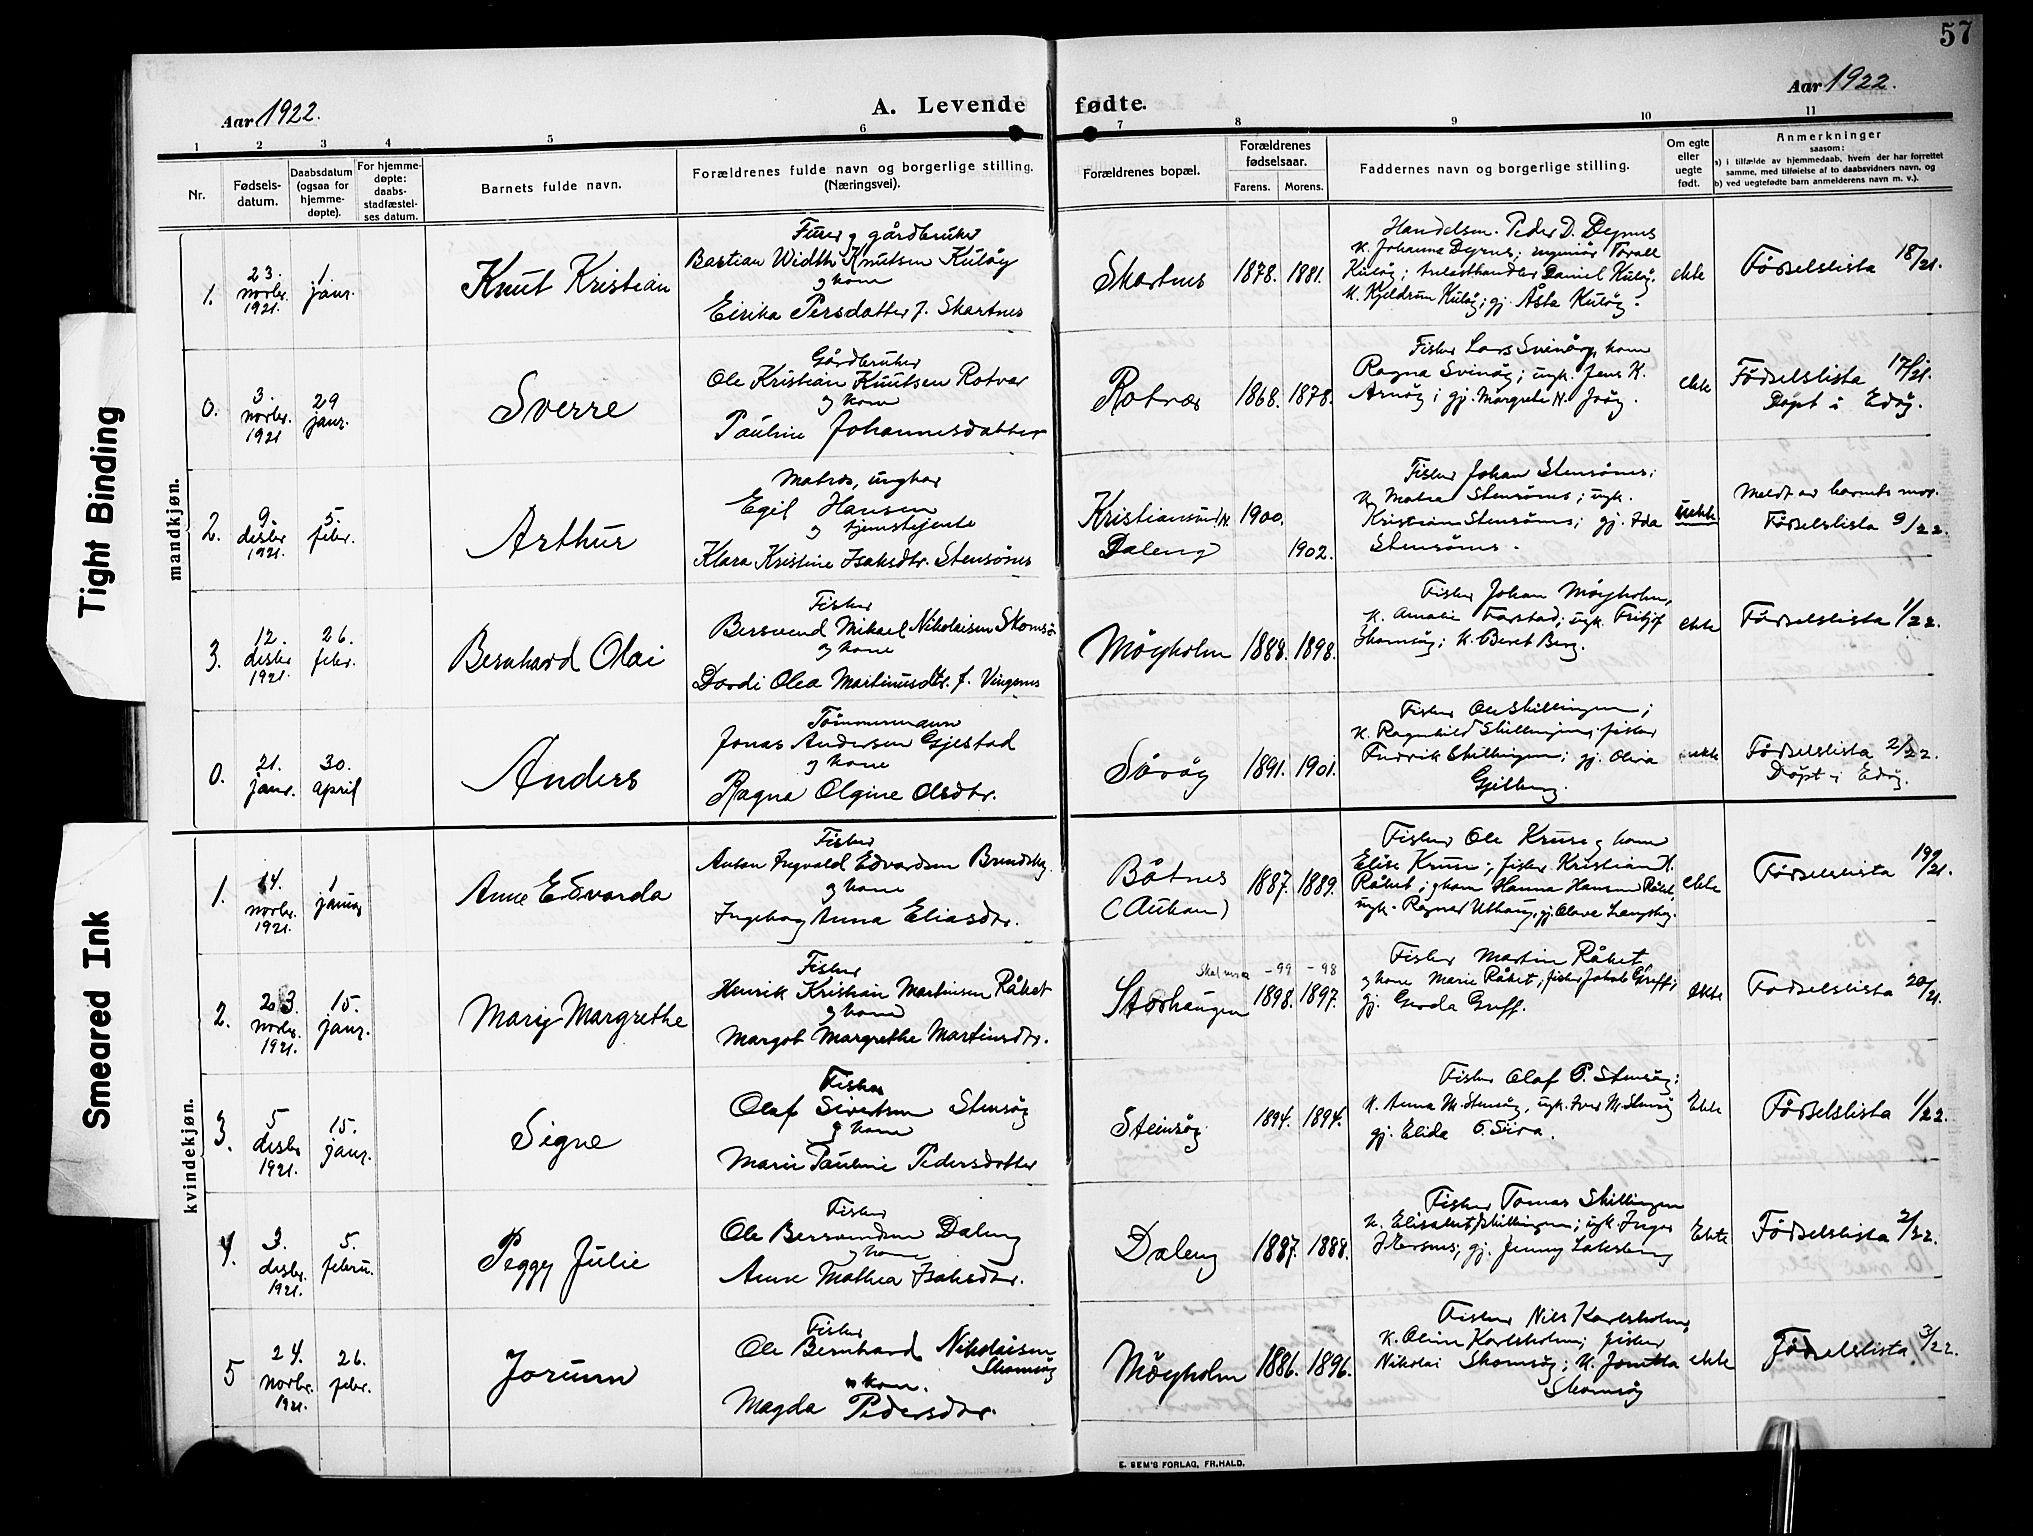 57
Aar 1922.
A. Levende fødte.
Aar 1922.
1 2 3 4 5 6 7 8 9 10 11
Nr.
Fødsels-
datum.
Daabsdatum
(ogsaa for
hjemme-
døpte).
For hjemme-
døpte:
daabs-
stadfæstel-
ses datum.
Barnets fulde navn.
Forældrenes fulde navn og borgerlige stilling.
(Næringsvei).
Forældrenes bopæl.
Forældrenes
fødselsaar.
Farens. Morens.
Faddernes navn og borgerlige stilling.
Om egte
eller
uegte
født.
Anmerkninger
saasom:
a) i tilfælde av hjemmedaab, hvem der har forrettet
samme, med tilføielse av to daabsvidners navn, og
b) ved uegtefødte barn anmelderens navn m. v.).
Tight Binding
Smeared Ink
mandkjøn.
1.
23.
novbr.
1921.
1.
janr.
Knut Kristian
og gårdbruker
Bastian Width Knutsen Kuløy
og kone
Eirika Persdatter f. Skartnes
Skartnes
1878. 1881.
Handelsm. Peder D. Dyrnes
k. Johanna Dyrnes; ingeniør
Kuløy; Daniel Kuløy.
Kuløy; gj. Åsta Kuløy.
ekte
Fødselslista 18/21.
0.
3.
novbr.
1921
29
janr.
Sverre
Gårdbruker
Ole Kristian Knutsen Rotvær
og kone
Pauline Johannesdatter
Rotvær
1868. 1878.
Fisker Lars Svinøy, kone
Ragna Svinøy; ungk. Jens K.
Arnøy; gj. Margrete N.
ekte
Fødselslista 17/21.
Døpt i Edøy.
2.
9.
desbr
1921.
5.
febr.
Arthur
Matros, ungkar
Egil Hansen
og tjenestejente
Klara Kristine Isaksdtr. Stensønes
Kristiansund N. 1900.
Daleng 1902.
Fisker Johan Stensønes;
k. Stensønes; ungk.
Kristian Stensønes; gj. Ida
Stensønes.
uekte
Meldt av barnets mor.
Fødselslista 9/22.
3.
12.
desbr
1921.
26.
febr.
Bernhard Olai
Fisker
Bersvend Mikael Nikolaisen Skomsø
og kone
Dordi Olea Martinusdtr. f. Vingenes
Møyholm
1888. 1898.
Fisker Johan Møyholm,
k. Amalie Farstad; ungk. Fritjof
Skomsøy; k. Beret Berg.
ekte
Fødselslista 1/22.
0.
21.
janr.
30.
april
Anders
Tømmermann
Jonas Andersen Gjestad
og kone
Ragna Olgine Olsdtr.
1891. 1901.
Fisker Ole Skillingen;
k. Ragnhild Skillingen; fisker
Fredrik Skillingen; gj. Oliva
ekte
Fødselslista 2/22.
Døpt i Edøy.
kvindekjøn.
1.
14.
novbr.
1921.
1
januar
Anne Edvarda
Fisker
Anton Ingvald Edvardsen
og kone
Ingeborg Anna Eliasdtr.
Båtnes
(Aukan)
1887. 1889.
Fisker Ole Kruse og kone
Elise Kruse; fisker Kristian H.
Råket; og kone Hanna Hansen Råket,
ungk. Ragnar Uthaug, gj. Olava
ekte
Fødselslista 19/21.
2.
23.
novbr.
1921.
15.
janr.
Mary Margrethe
Fisker
Henrik Kristian Martinsen Råket
og kone
Margot Margrethe Martinsdtr.
-99 -98
Storhaugen
1898. 1897.
Fisker Martin Råket,
og kone Marie Råket, fisker Jakob Greff;
gj. Gerda Greff.
ekte
Fødselslista 20/21.
3.
5
desbr
1921.
15.
janr.
Signe
Fisker
Olaf Sivertsen Stensøy
og kone
Marie Pauline Pedersdatter
Steinsøy
1894. 1894.
Fisker Olaf P. Stensøy;
k. Anna M. Stensøy, ungk. Iver M. Stensøy
gj. Elida O.
Ekte
Fødselslista 1/22.
4.
3.
desbr.
1921.
5.
febru.
Peggy Julie
Fisker
Ole Bersvendsen Daleng
og kone
Anne Mathea Isaksdtr.
Daleng
1887. 1888.
Fisker Tomas Skillingen
k. Elisabet Skillingen; ungk. Inger
gj. Jenny
Ekte
Fødselslista 2/22.
5
24.
novbr.
1921.
26.
febr.
Jorunn
Fisker
Ole Bernhard Nikolaisen
Skomsøy
og kone.
Magda Pedersdtr.
Møyholm
1886. 1896.
Fisker Nils Karlsholm,
k. Oline Karlsholm; fisker
Nikolai Skomsøy; k. Jonetta
Skomsøy
ekte
Fødselslista 3/22.
E. SEM'S FORLAG, FR.HALD.